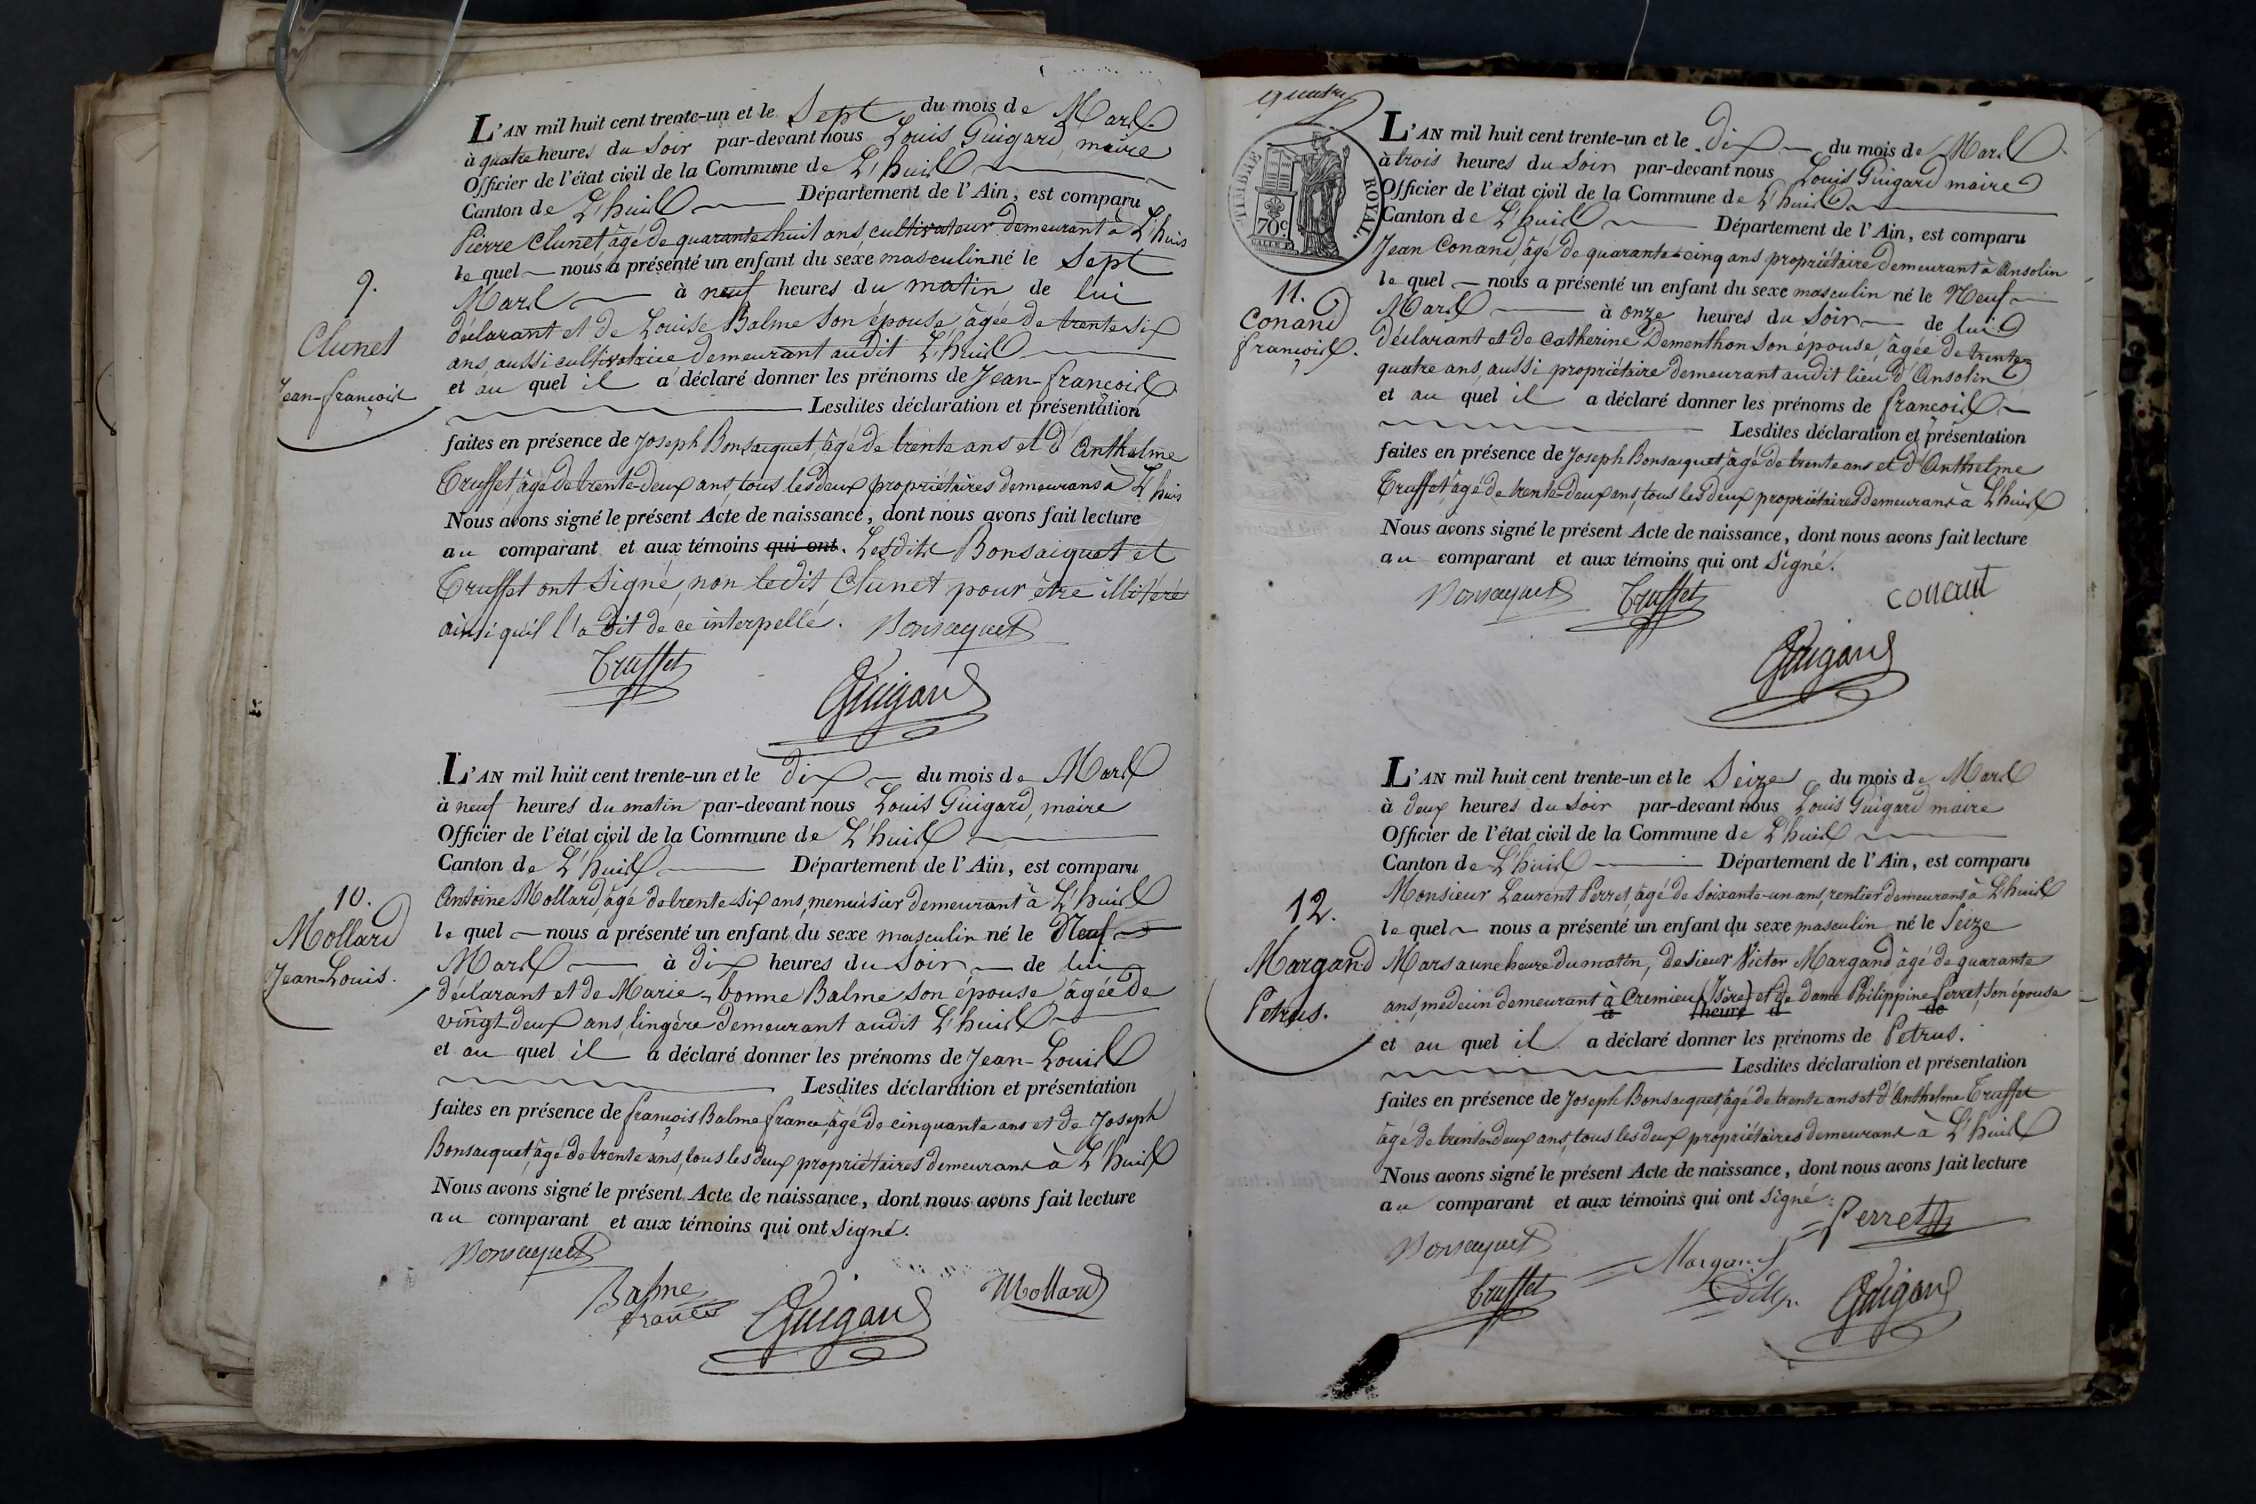 L'AN mil huit cent trente-un et le Sept du mois de Mars
à quatre heures du Soir par-devant nous Louis Guigard, maire
Officier de l'état civil de la Commune de L'huis
Canton de L'huis Département de l'Ain, est comparu
Pierre Clunet âgé de quarante-huit ans, cultivateur demeurant à L'huis
lequel nous a présenté un enfant du sexe masculin né le Sept
9.
Mars à neuf heures du matin de lui
Clunet
déclarant et de Louise Balme son épouse, âgée de trente six
ans, aussi cultivatrice demeurant audit L'huis
Jean-françois
et au quel il a déclaré donner les prénoms de Jean-françois
Lesdites déclaration et présentation
faites en présence de Joseph Bonsacquet, âgé de trente ans et d'Anthelme
Truffet, âgé de trente-deux ans, tous les deux propriétaires demeurans à L'huis
Nous avons signé le présent Acte de naissance, dont nous avons fait lecture
au comparant et aux témoins qui ont. Lesdits Bonsacquet et
Truffet ont signé, non ledit Clunet pour être illitéré
ainsi qu'il l'a dit de ce interpellé. Bonsacquet
Truffet
Guigard
L'AN mil huit cent trente-un et le dix du mois de Mars
à neuf heures du matin par-devant nous Louis Guigard, maire
Officier de l'état civil de la Commune de L'huis
Canton de L'huis Département de l'Ain, est comparu
10.
Antoine Mollard, âgé de trente-six ans, menuisier demeurant à L'huis
Mollard
lequel nous a présenté un enfant du sexe masculin né le Neuf
Jean-Louis.
Mars à dix heures du Soir de lui
déclarant et de Marie-bonne Balme son épouse âgée de
vingt-deux ans, lingère demeurant audit L'huis
et au quel il a déclaré donner les prénoms de Jean-Louis
Lesdites déclaration et présentation
faites en présence de françois Balme france, âgé de cinquante ans et de Joseph
Bonsacquet, âgé de trente ans, tous les deux propriétaires demeurans à L'huis
Nous avons signé le présent Acte de naissance, dont nous avons fait lecture
au comparant et aux témoins qui ont signé.
Bonsacquet
Balme
Mollard
Guigard
quatre
TIMBRE ROYAL
70c
L'AN mil huit cent trente-un et le dix du mois de Mars
à trois heures du Soir par-devant nous Louis Guigard maire
Officier de l'état civil de la Commune de L'huis
Canton de L'huis Département de l'Ain, est comparu
Jean Conand, âgé de quarante-cinq ans propriétaire demeurant à Ansolin
lequel nous a présenté un enfant du sexe masculin né le Neuf
11.
Mars à onze heures du Soir de lui
Conand
françois.
déclarant et de Catherine Dementhon son épouse, âgée de trente
quatre ans, aussi propriétaire demeurant audit lieu d'Ansolin
et au quel il a déclaré donner les prénoms de françois
Lesdites déclaration et présentation
faites en présence de Joseph Bonsacquet âgé de trente ans et d'Anthelme
Truffet âgé de trente-deux ans, tous les deux propriétaires demeurans à L'huis
Nous avons signé le présent Acte de naissance, dont nous avons fait lecture
au comparant et aux témoins qui ont Signé.
Bonsacquet Truffet conant
Guigard
L'AN mil huit cent trente-un et le Seize du mois de Mars
à deux heures du Soir par-devant nous Louis Guigard maire
Officier de l'état civil de la Commune de L'huis
Canton de L'huis Département de l'Ain, est comparu
Monsieur Laurent Perret, âgé de soixante-un ans, rentier demeurant à L'huis
12.
lequel nous a présenté un enfant du sexe masculin né le Seize
Margand
Mars a une heure du matin, de sieur Victor Margand âgé de quarante
ans, médecin demeurant à Cremieu (Isère) et de dame Philippine Perret, son épouse
à heure d de
Petrus.
et au quel il a déclaré donner les prénoms de Petrus.
Lesdites déclaration et présentation
faites en présence de Joseph Bonsacquet, âgé de trente ans et d'Anthelme Truffet
âgé de trente-deux ans, tous les deux propriétaires demeurans à L'huis
Nous avons signé le présent Acte de naissance, dont nous avons fait lecture
au comparant et aux témoins qui ont signé.
Perret
Bonsacquet
Margand
Truffet
Guigard